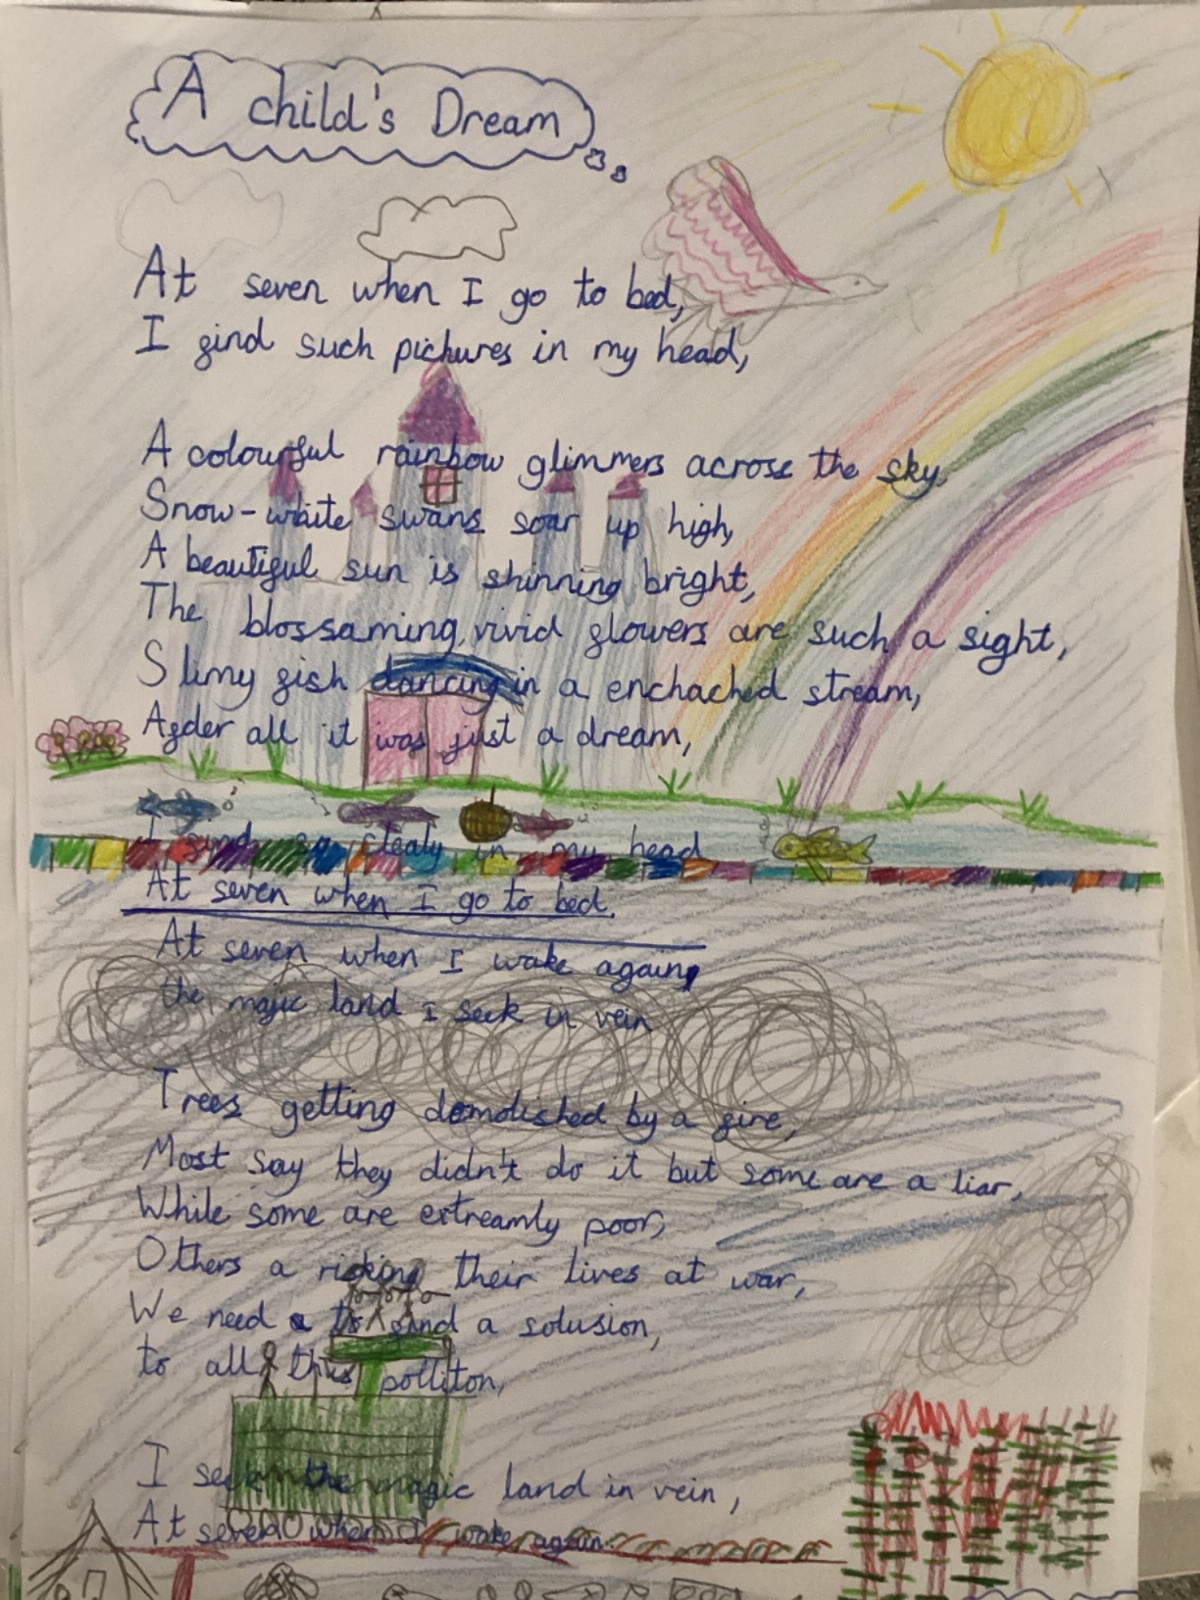 A child's Dream
At seven when I go to bed,
I find such pichures in my head,
A colourful rainbow glimmers across the sky,
Snow-white swans soar up high,
A beautiful sun is shinning bright,
The blossaming, vivid flowers are such a sight,
Slimy fish dancing in a enchached stream,
After all it was just a dream,
I find so clealy in my head
At seven when I go to bed.
At seven when I wake again,
the majic land I seek in vein
Trees getting demolished by a fire,
Most say they didn't do it but some are a liar,
While some are extreamly poor,
Others a risking their lives at war,
We need to find a solusion,
to all this polliton,
I seek the magic land in vein,
At seven when I wake again.